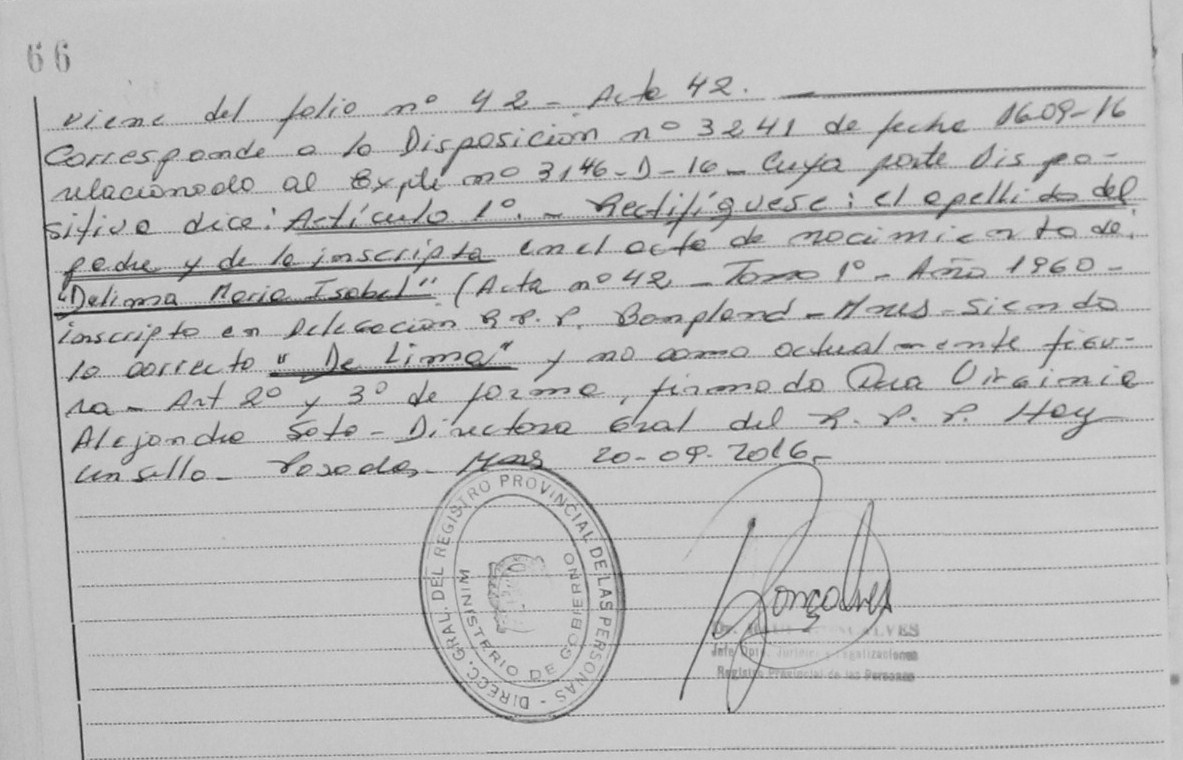 66
viene del folio nº 42 - Acta 42.
Corresponde a la Disposición nº 3241 de fecha 16-09-16
relacionado al Expte nº 3146-D-16 - Cuya parte dispo-
sitiva dice: Artículo 1º. - Rectifíquese: el apellido del
padre y de la inscripta en el acta de nacimiento de:
"Delima Maria Isabel" (Acta nº 42 - Tomo 1º - Año 1960 -
inscripta en Delegación R.P.P. Bonpland - Mnes - siendo
lo correcto "De Lima" y no como actualmente figu-
ra - Art 2º y 3º de forma, firmado Dra Virginia
Alejandra Soto - Directora Gral del R.P.P. Hay
un sello - Posadas - Mnes 20-09-2016.-
DIRECC. GRAL. DEL REGISTRO PROVINCIAL DE LAS PERSONAS -
MINISTERIO DE GOBIERNO
Gonçalves
GONÇALVES
Jefe Dpto. Jurídico y Legalizaciones
Registro Provincial de las Personas